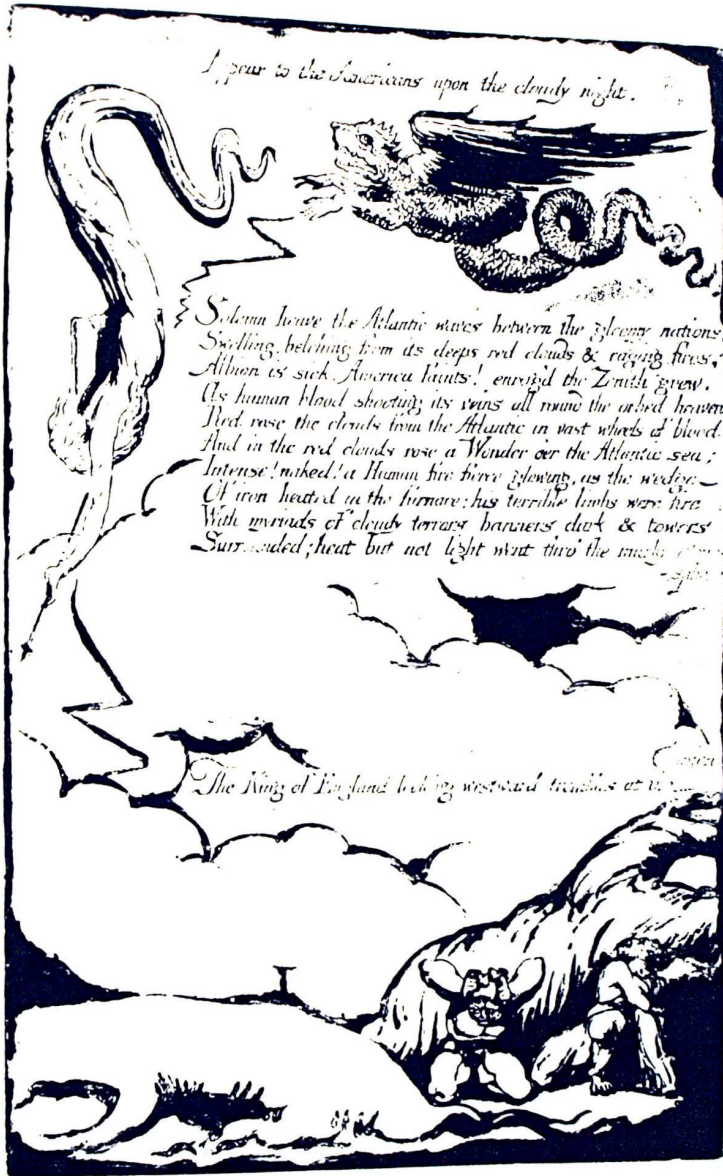 Appear to the Americans upon the cloudy night.
Solemn heave the Atlantic waves between the gloomy nations
Swelling, belching from its deeps red clouds & raging fires.
Albion is sick. America faints! enrag'd the Zenith grew.
As human blood shooting its veins all round the orbed heaven
Red rose the clouds from the Atlantic in vast wheels of blood
And in the red clouds rose a Wonder o'er the Atlantic sea;
Intense! naked! a Human fire fierce glowing, as the wedge
Of iron heated in the furnace; his terrible limbs were fire
With myriads of cloudy terrors banners dark & towers
Surrounded; heat but not light went thro' the murky
The King of England looking westward trembles at